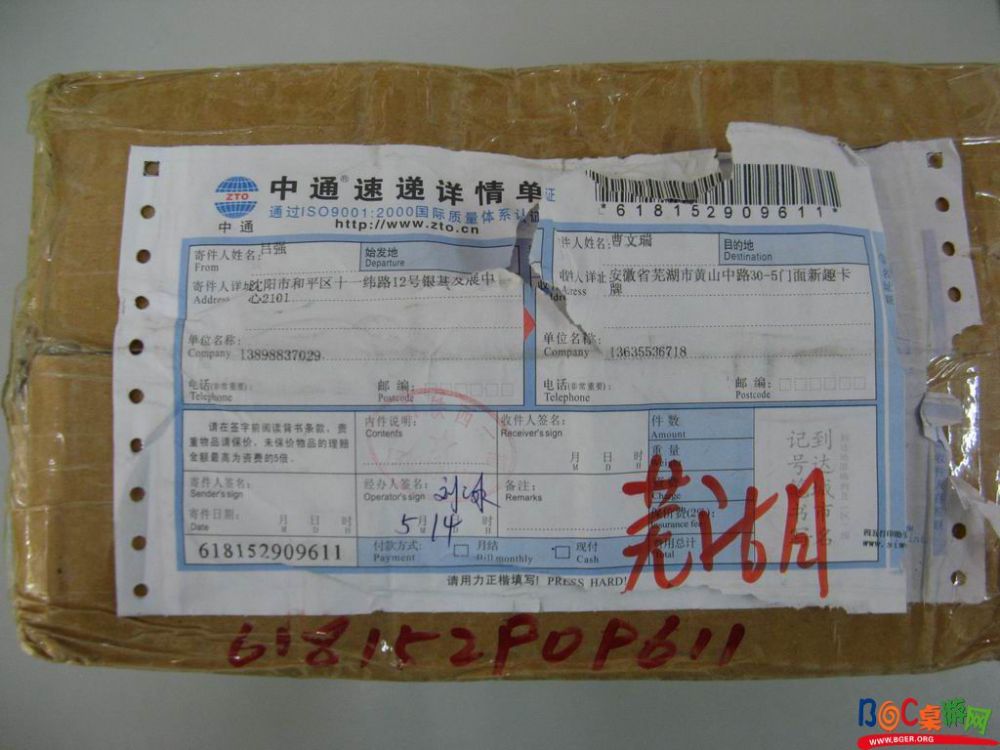 ZTO
中通
中通®速递详情单
证
通过ISO9001:2000国际质量体系认
http://www.zto.cn
*618152909611*
寄件人姓名:吕强
From
始发地
Departure
寄件人详址:沈阳市和平区十一纬路12号银基发展中
Address 心2101
单位名称:
Company 13898837029
电话(非常重要):
Telephone
邮 编:
Postcode
件人姓名:曹文瑞
目的地
Destination
收件人详址:安徽省芜湖市黄山中路30-5门面新趣卡
牌
单位名称:
Company 13635536718
电话(非常重要):
Telephone
邮 编:
Postcode
请在签字前阅读背书条款,贵
重物品请保价,未保价物品的理赔
金额最高为资费的5倍.
寄件人签名:
Sender's sign
寄件日期:
Date
月 日 时
M D H
618152909611
内件说明:
Contents
经办人签名:
Operator's sign
5月14日 时
付款方式:
Payment
月结
Bill monthly
现付
Cash
收件人签名:
Receiver's sign
月 日 时
M D H
备注:
Remarks
件 数
Amount
重 量
Charge
保价费(2%):
Insurance fee
费用总计
Total
到达城市名
记号笔书写
芜湖
请用力正楷填写! PRESS HARD!
618152909611
BGC桌游网
WWW.BGER.ORG